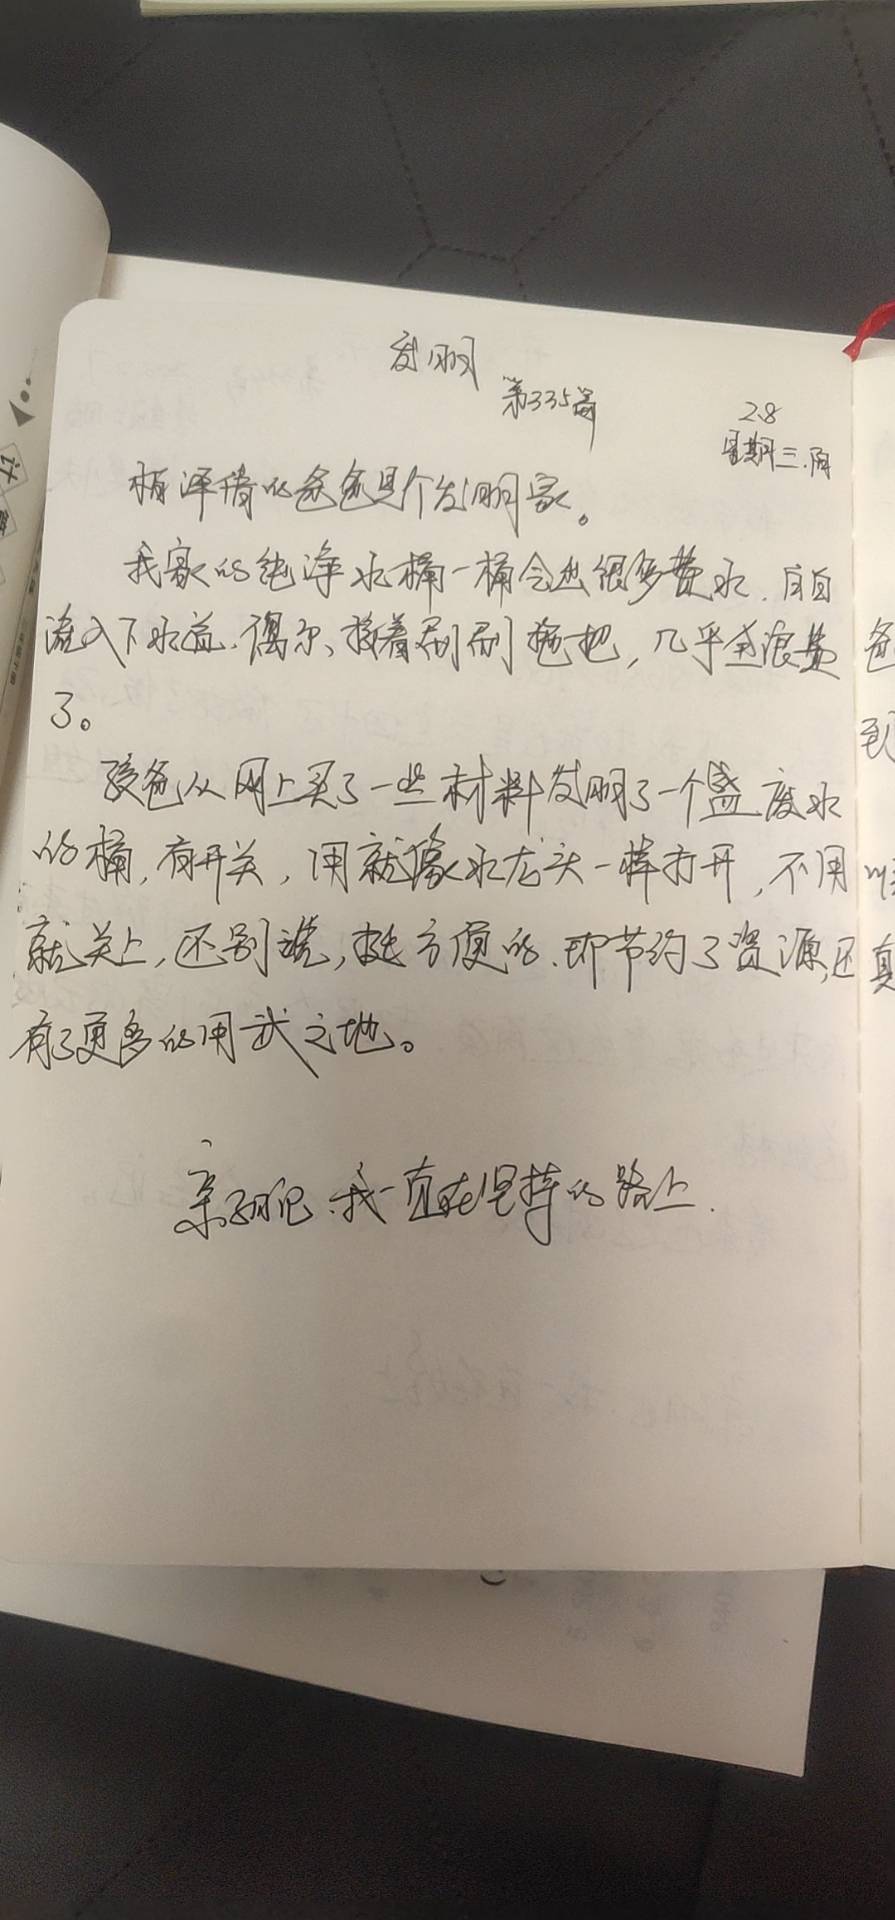 发明
第335篇
2.8
星期三.阴
柏泽倩的爸爸是个发明家。
我家的纯净水桶一桶会出很多费水.白白
流入下水道.偶尔、接着刷刷拖把,几乎全浪费
了。
孩爸从网上买了一些材料发明了一个盛废水
的桶,有开关,用就像水龙头一样打开,不用
就关上,还别说,挺方便的.即节约了资源,还
有了更多的用武之地。
亲子日记.我一直在坚持的路上.
爸
到
真
计